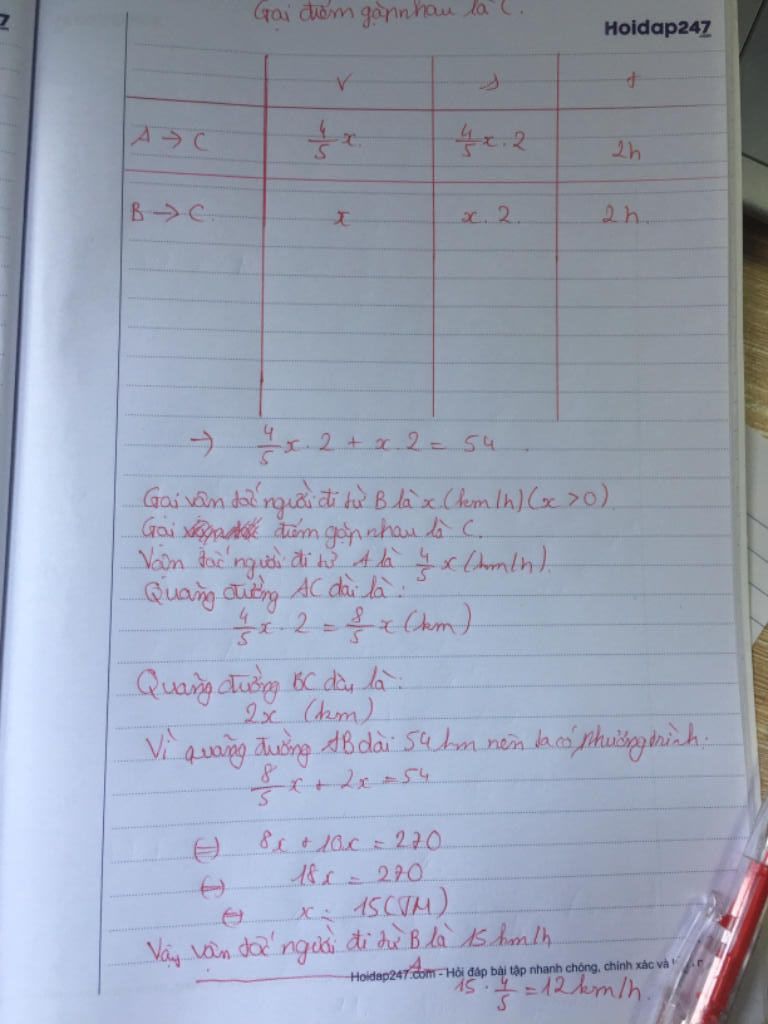 Gọi điểm gặp nhau là C.
Hoidap247
7
v s t
A → C 4/5 x. 4/5 x . 2 2h
B → C. x x . 2. 2h.
→ 4/5 x . 2 + x . 2 = 54.
Gọi vận tốc người đi từ B là x (km/h) (x > 0)
Gọi điểm gặp nhau là C.
Vận tốc người đi từ A là 4/5 x (km/h).
Quãng đường AC dài là:
4/5 x . 2 = 8/5 x (km)
Quãng đường BC dài là:
2x (km)
Vì quãng đường AB dài 54 km nên ta có phương trình:
8/5 x + 2x = 54
⇔ 8x + 10x = 270
⇔ 18x = 270
⇔ x = 15 (TM)
Vậy vận tốc người đi từ B là 15 km/h
A
Hoidap247.com - Hỏi đáp bài tập nhanh chóng, chính xác và
15 . 4/5 = 12 km/h.